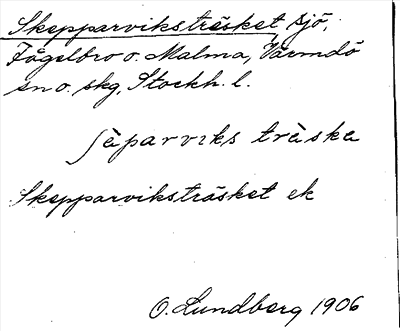 Skepparviksträsket, sjö,
Fågelbro o. Malma, Värmdö
sn o. skg, Stockh. l.
ʃèparviks tràska
Skepparviksträsket ek
O. Lundberg 1906